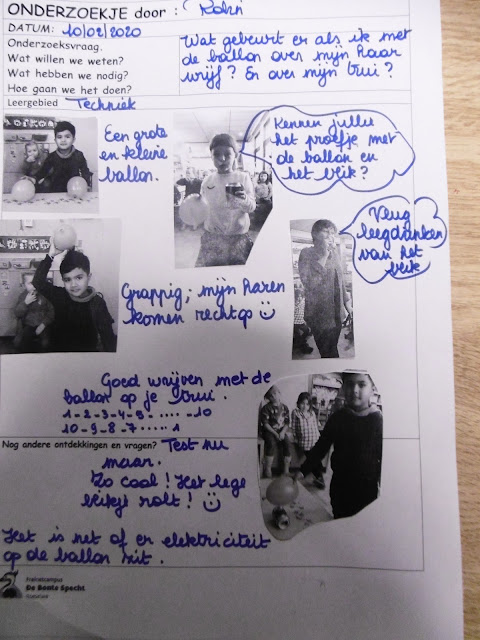 ONDERZOEKJE door : Robin
DATUM: 10/02/2020
Onderzoeksvraag.
Wat willen we weten?
Wat hebben we nodig?
Hoe gaan we het doen?
Wat gebeurt er als ik met
de ballon over mijn haar
wrijf? En over mijn trui?
Leergebied Techniek
Een grote
en kleine
ballon.
Kennen jullie
het proefje met
de ballon en
het blik?
Vlug
leegdrinken
van het
blik
Grappig; mijn haren
komen rechtop
Goed wrijven met de
ballon op je trui.
1-2-3-4-5-.....-10
10-9-8-7.....1
Nog andere ontdekkingen en vragen? Test nu
maar.
Zo cool! Het lege
blikje rolt!
Het is net of er elektriciteit
op de ballon zit.
De Bonte Specht